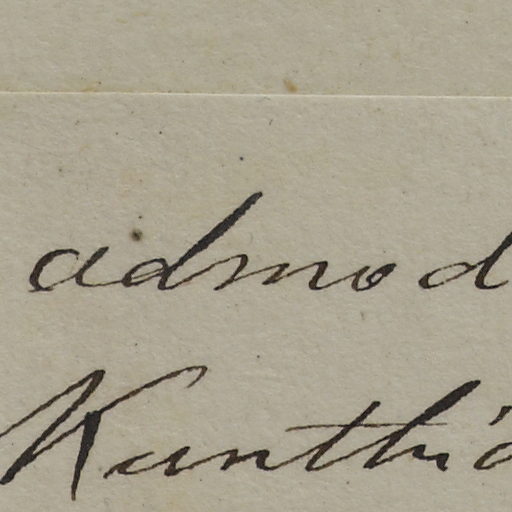 admod
Kunthi